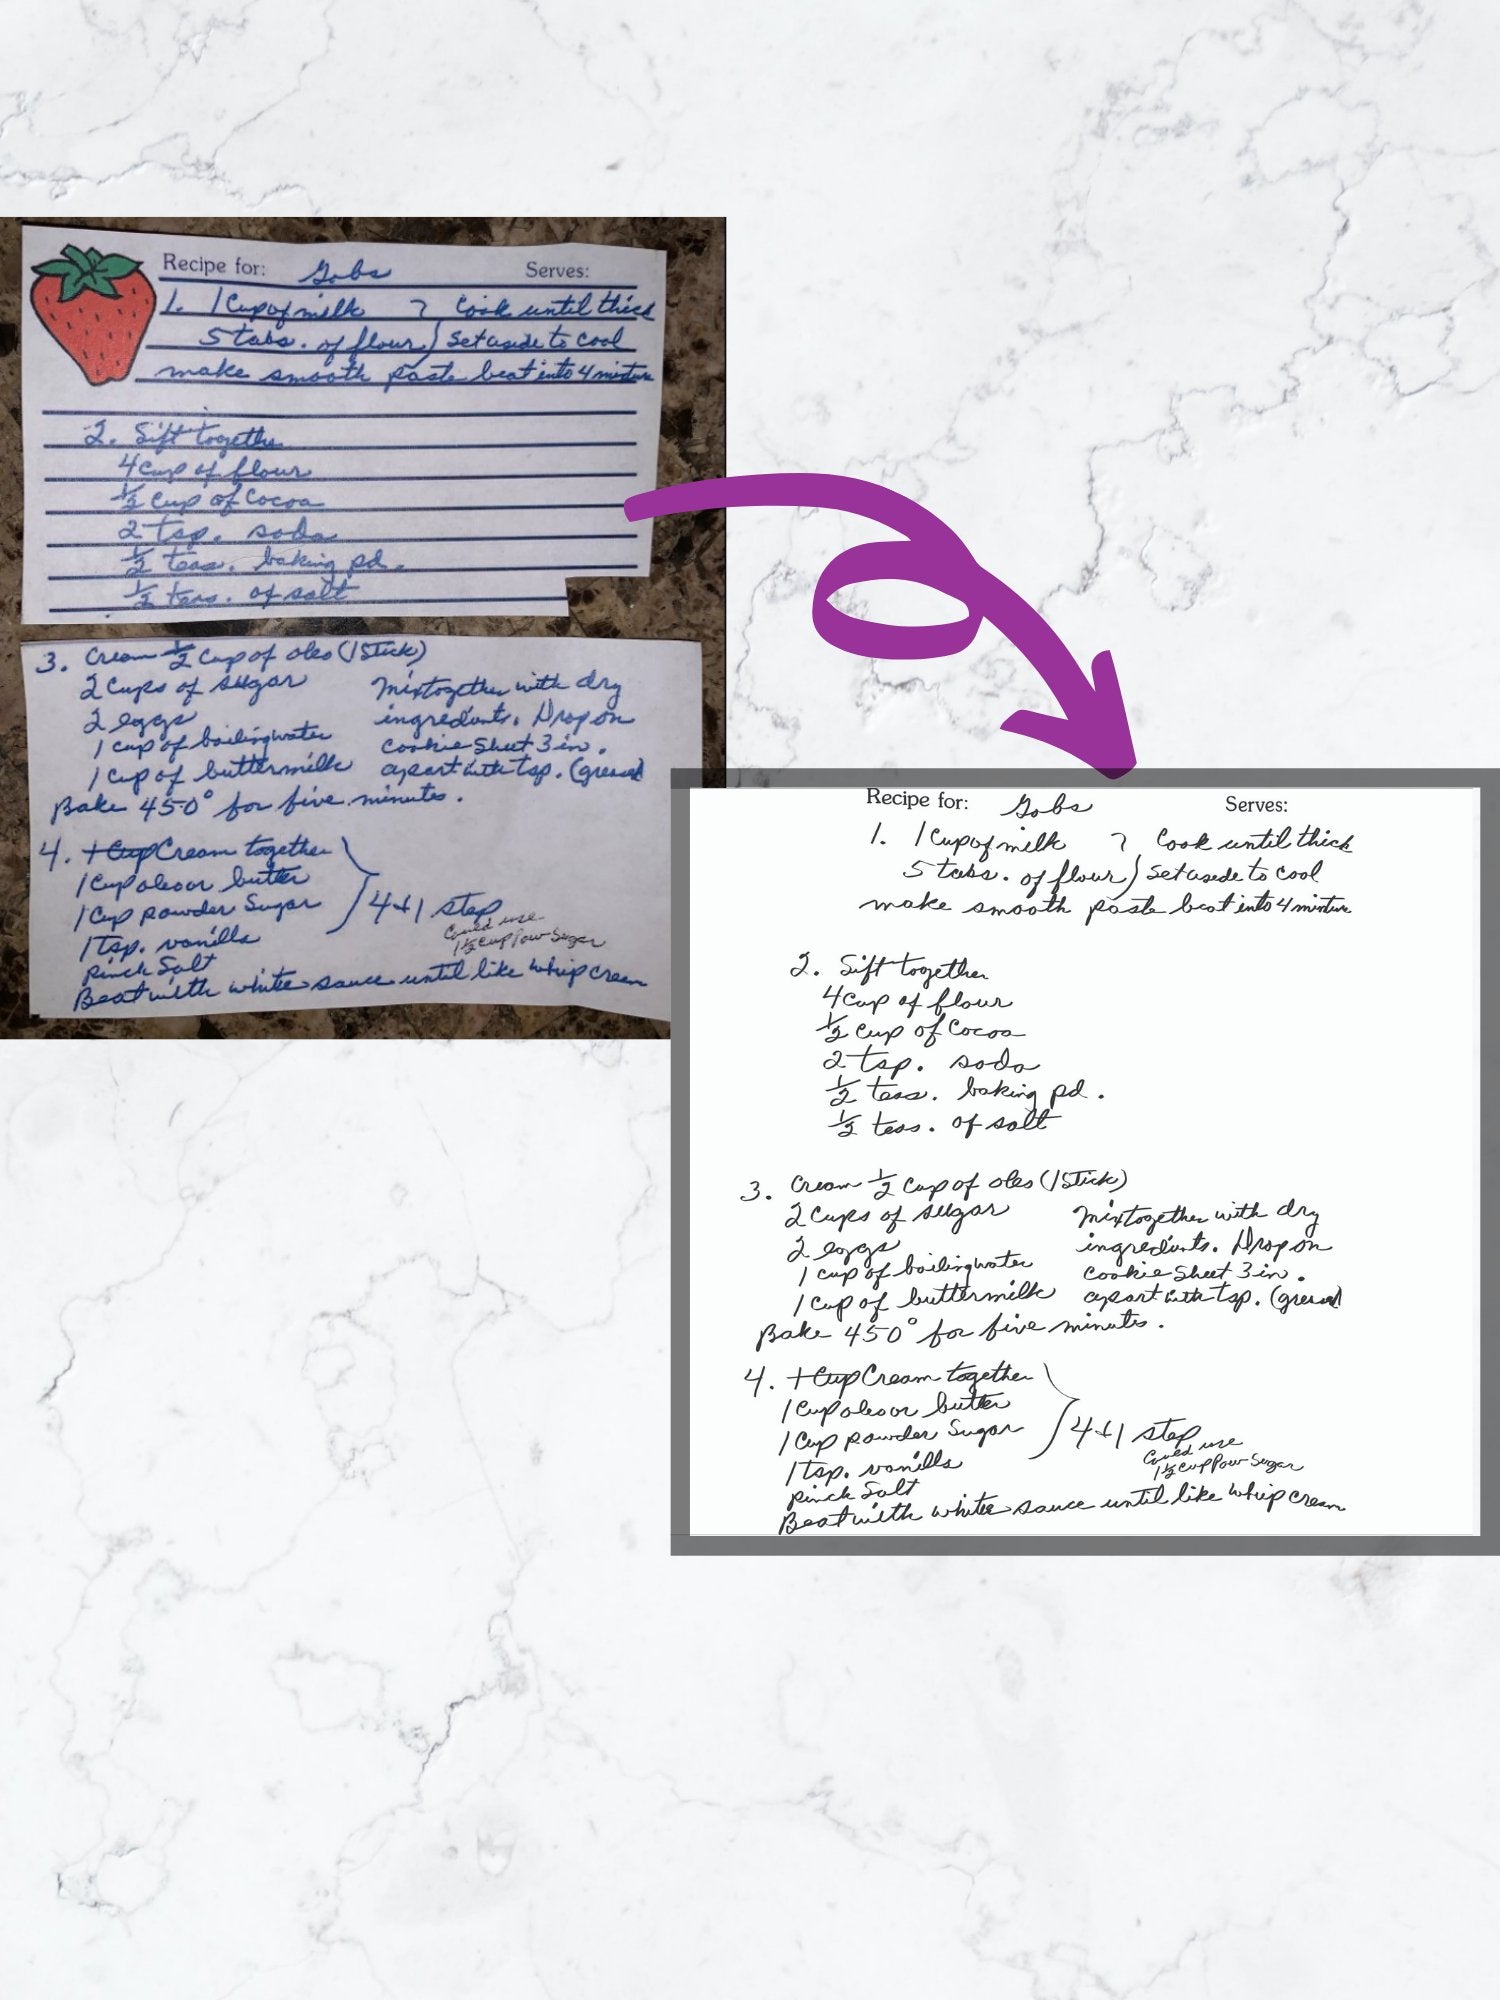 Recipe for: Gobs Serves:
1. 1 Cup of milk Cook until thick
5 tabs. of flour) Set aside to cool
make smooth paste beat into 4 mixture
2. Sift together
4 cup of flour
1/2 cup of Cocoa
2 tsp. soda
1/2 teas. baking pd.
1/2 teas. of salt
3. Cream 1/2 Cup of oleo (1 Stick)
2 Cups of sugar Mix together with dry
2 eggs ingrediants. Drop on
1 cup of boiling water cookie Sheet 3 in.
1 cup of buttermilk apart with tsp. (greased
Bake 450° for five minutes.
4. 1 Cup Cream together
1 Cup oleo or butter
1 Cup powder Sugar 4+1 step
1 Tsp. vanilla Could use
Pinch Salt 1 1/2 cup Pow Sugar
Beat with white sauce until like whip cream
Recipe for: Gobs Serves:
1. 1 Cup of milk Cook until thick
5 tabs. of flour) Set aside to cool
make smooth paste beat into 4 mixture
2. Sift together
4 cup of flour
1/2 cup of Cocoa
2 tsp. soda
1/2 teas. baking pd.
1/2 teas. of salt
3. Cream 1/2 Cup of oleo (1 Stick)
2 Cups of sugar Mix together with dry
2 eggs ingrediants. Drop on
1 cup of boiling water cookie Sheet 3 in.
1 cup of buttermilk apart with tsp. (greased
Bake 450° for five minutes.
4. 1 Cup Cream together
1 Cup oleo or butter
1 Cup powder Sugar 4+1 step
1 Tsp. vanilla Could use
Pinch Salt 1 1/2 cup Pow Sugar
Beat with white sauce until like whip cream